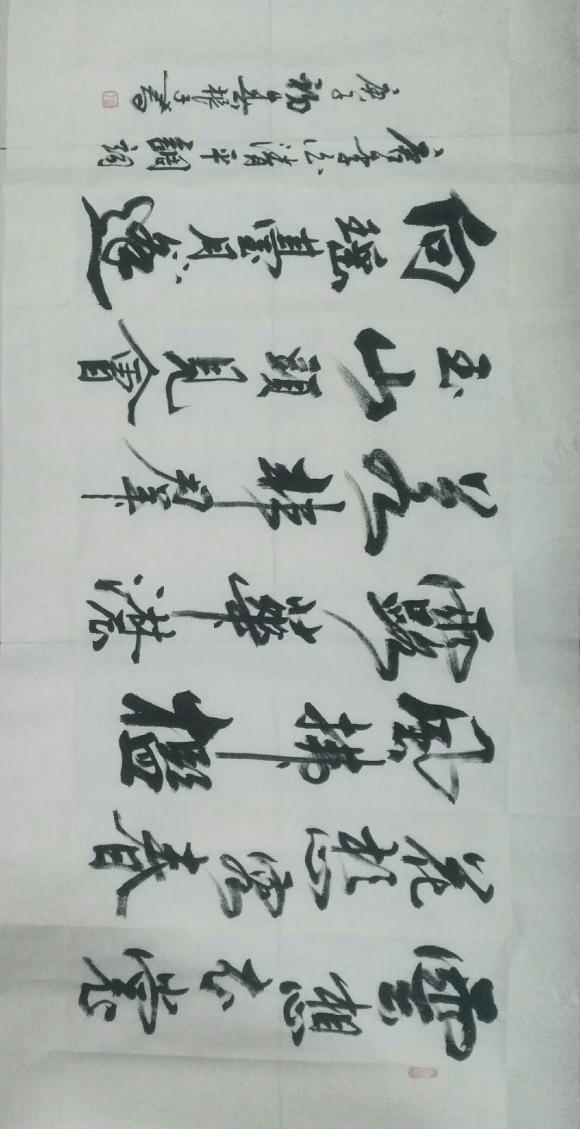 雲想衣裳
花想容春
風拂檻
露華濃
若非群
玉山頭見會
向瑤臺月下逢
唐李白清平調詞
庚子初春書